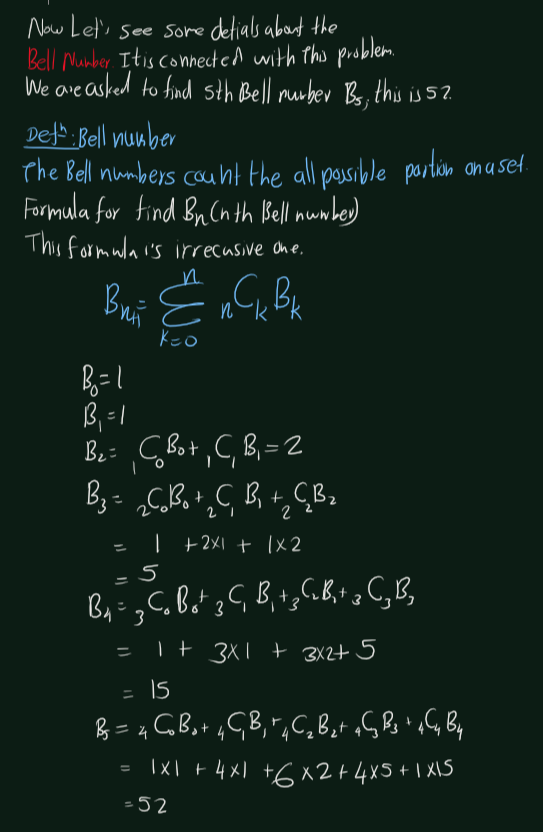 Now Let's see some detials about the
Bell Number. It is connected with this problem.
We are asked to find 5th Bell number B₅, this is 52.
Defⁿ: Bell number
The Bell numbers count the all possible partion on a set.
Formula for find Bₙ (nth Bell number)
This formula is irrecusive one.
Bₙ₊₁ = ∑ₖ₌₀ⁿ ₙCₖ Bₖ
B₀ = 1
B₁ = 1
B₂ = ₁C₀B₀ + ₁C₁ B₁ = 2
B₃ = ₂C₀B₀ + ₂C₁ B₁ + ₂C₂B₂
= 1 + 2×1 + 1×2
= 5
B₄ = ₃C₀ B₀ + ₃C₁ B₁ + ₃C₂B₁ + ₃C₃ B₃
= 1 + 3×1 + 3×2 + 5
= 15
B₅ = ₄C₀B₀ + ₄C₁B₁ + ₄C₂B₂ + ₄C₃ B₃ + ₄C₄ B₄
= 1×1 + 4×1 + 6×2 + 4×5 + 1×15
= 52